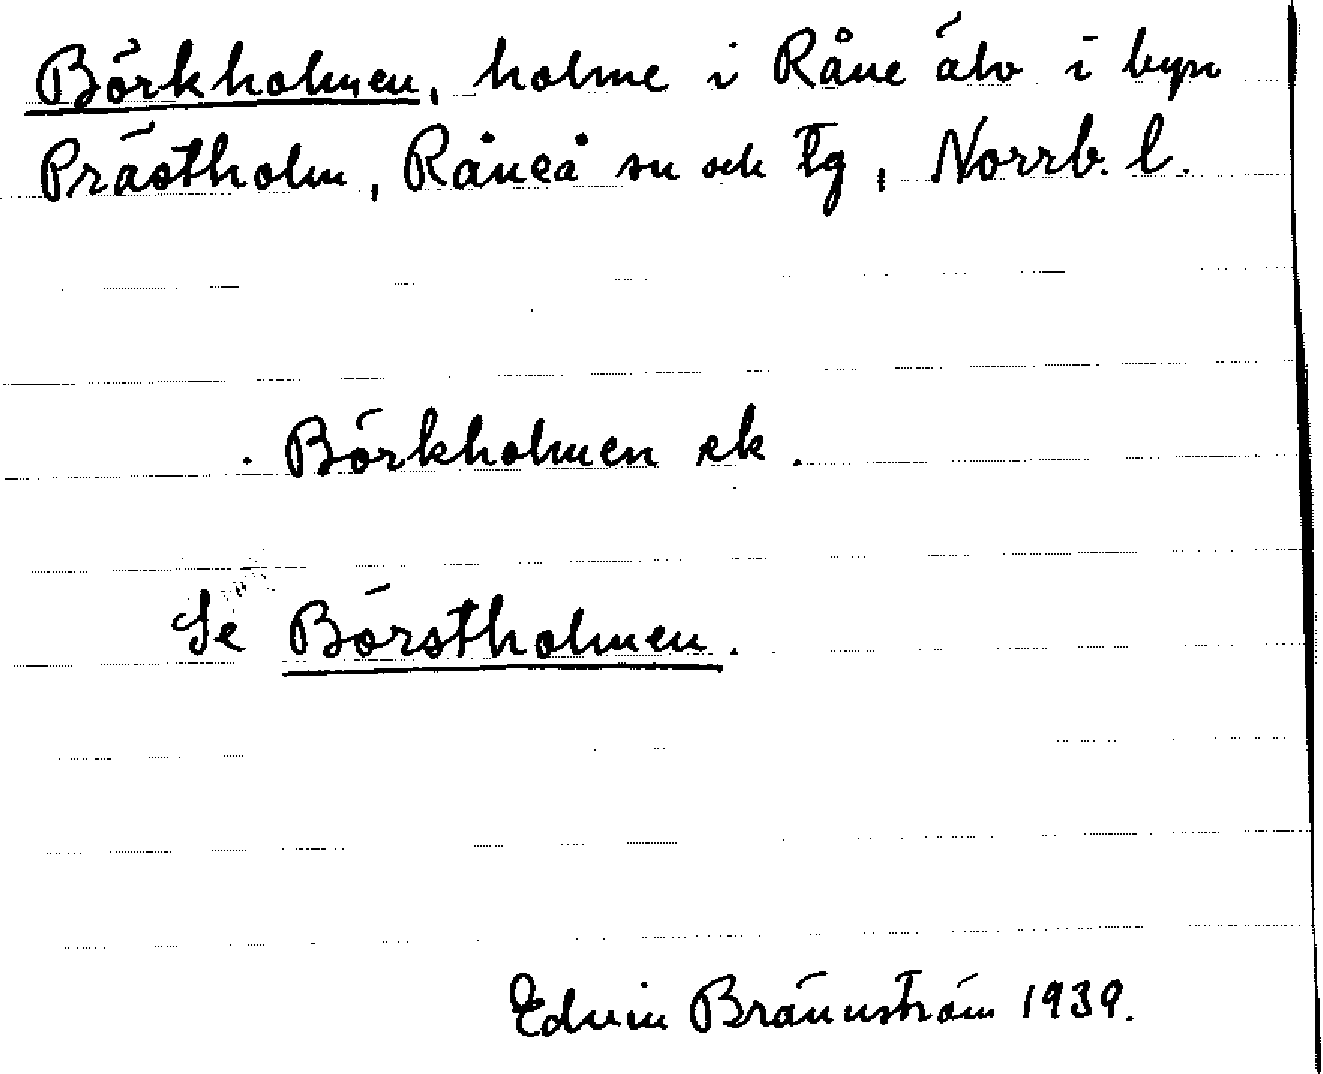 Börkholmen, holme i Råne älv i byn
Prästholm, Råneå sn och tg, Norrb. l.
Börkholmen ek.
Se Börstholmen.
Edvin Brännström 1939.